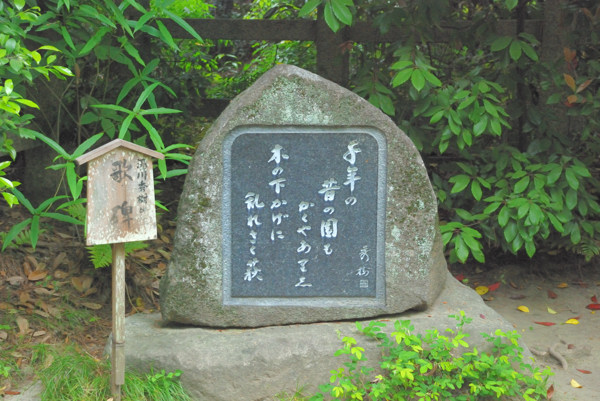 湯川秀樹
歌碑
千年の
昔の園も
かくやありし
木の下かげに
乱れさく萩
秀樹